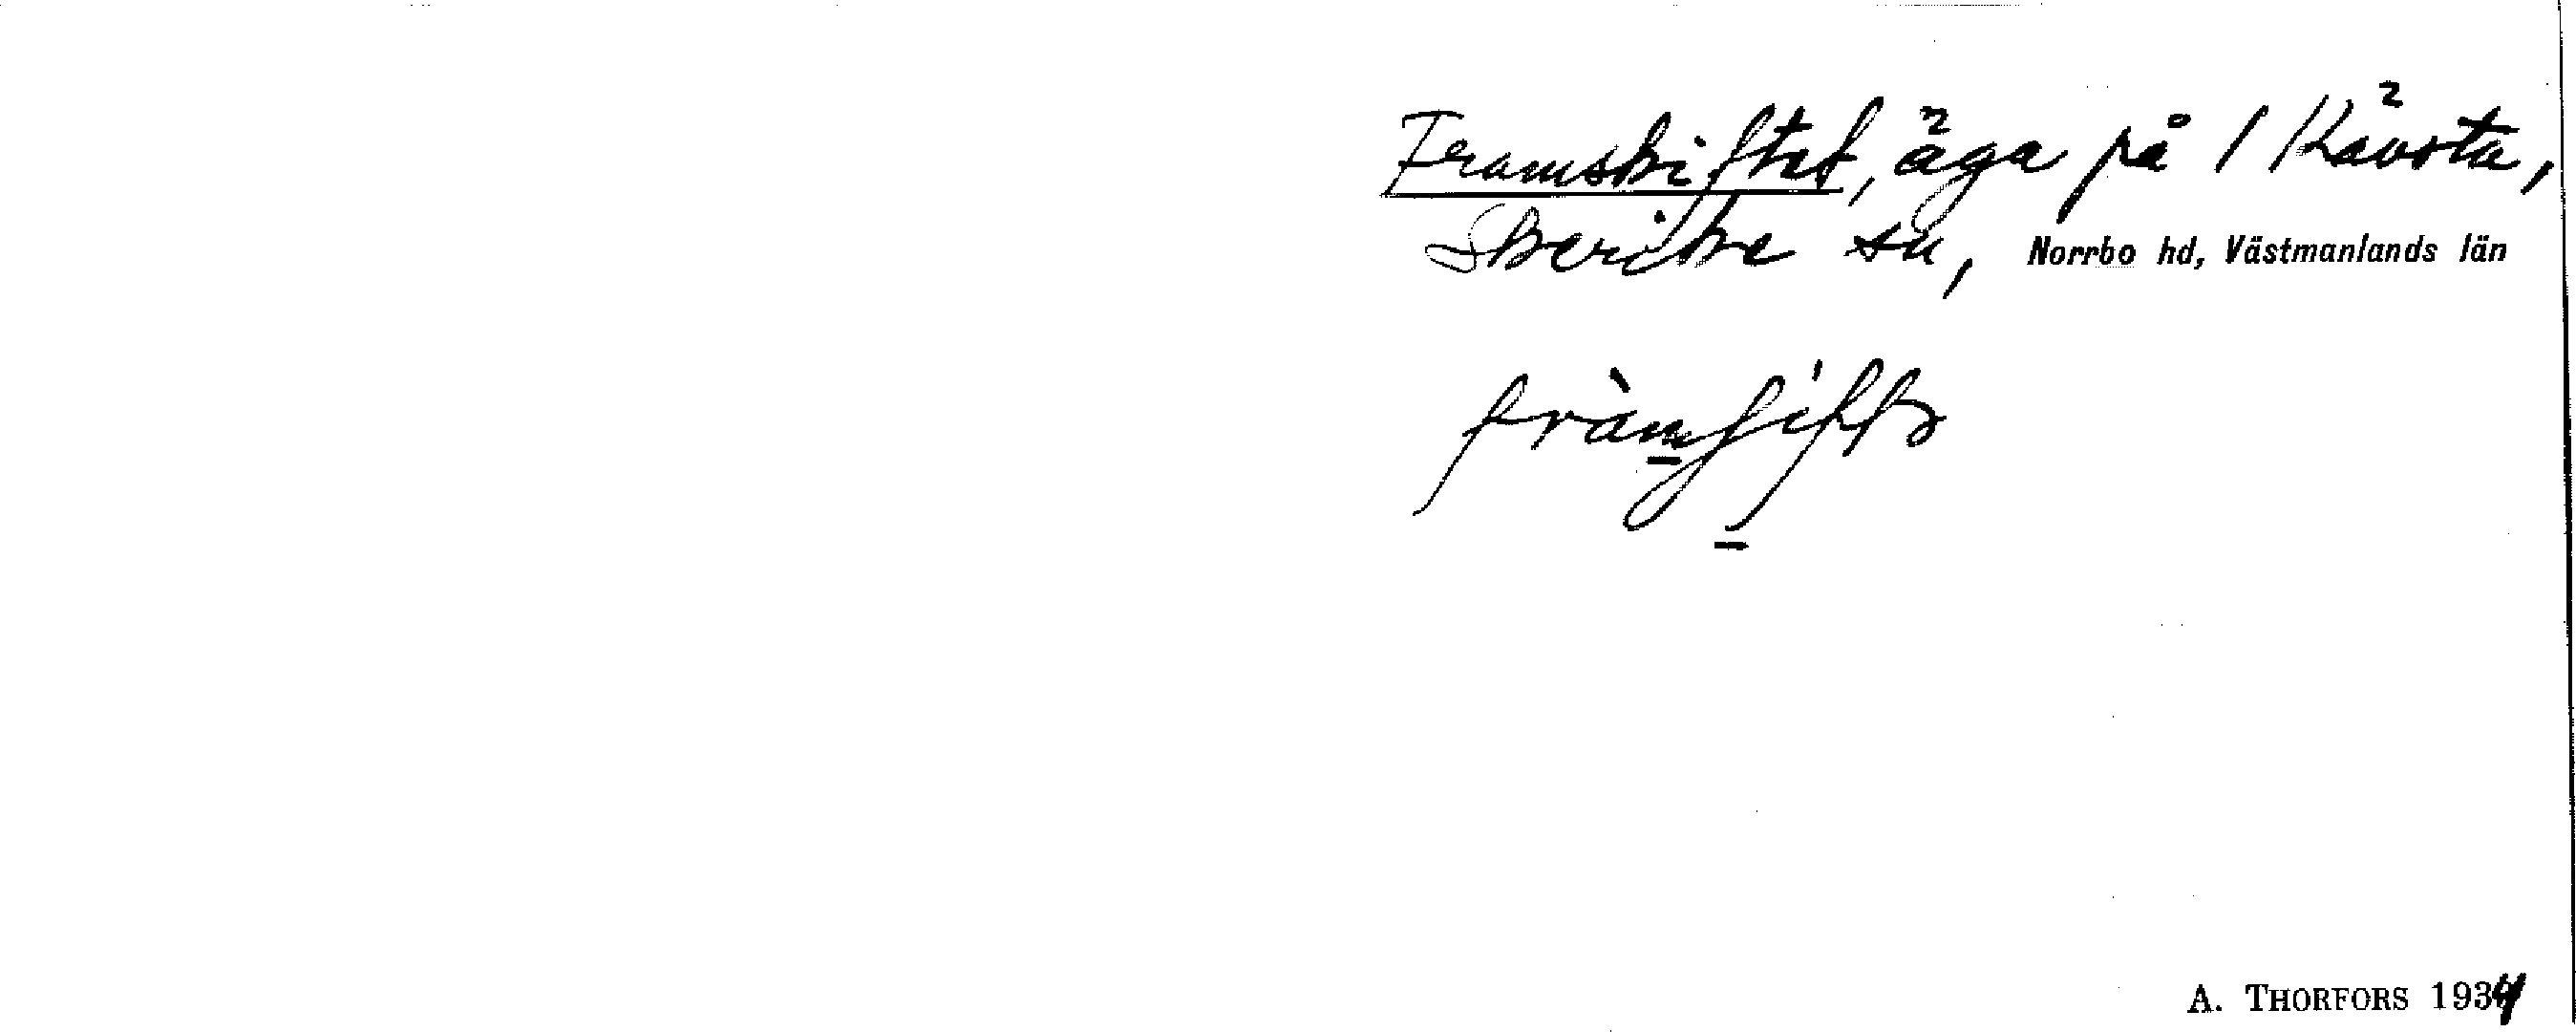 Framskiftet, äga på 1 Kävsta,
Skerike sn, Norrbo hd, Västmanlands län
A. THORFORS 1934